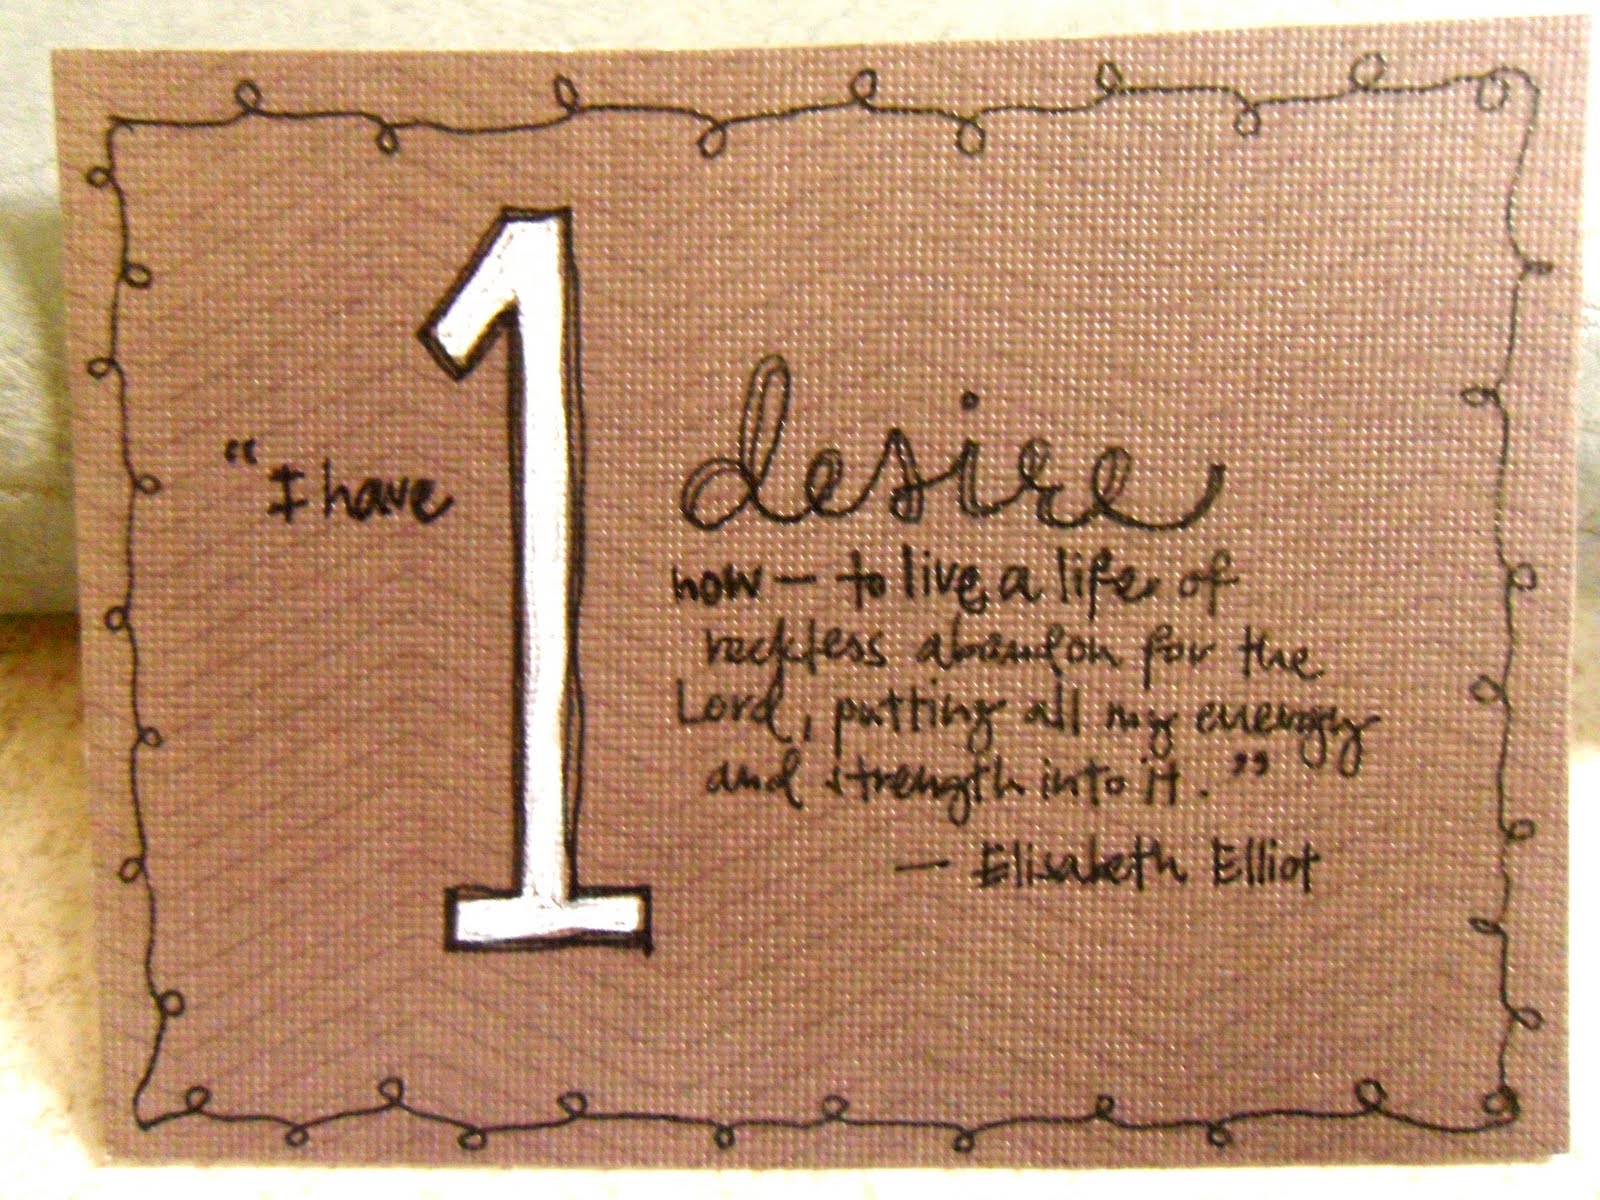 "I have 1 desire
now — to live a life of
reckless abandon for the
Lord, putting all my energy
and strength into it."
— Elisabeth Elliot